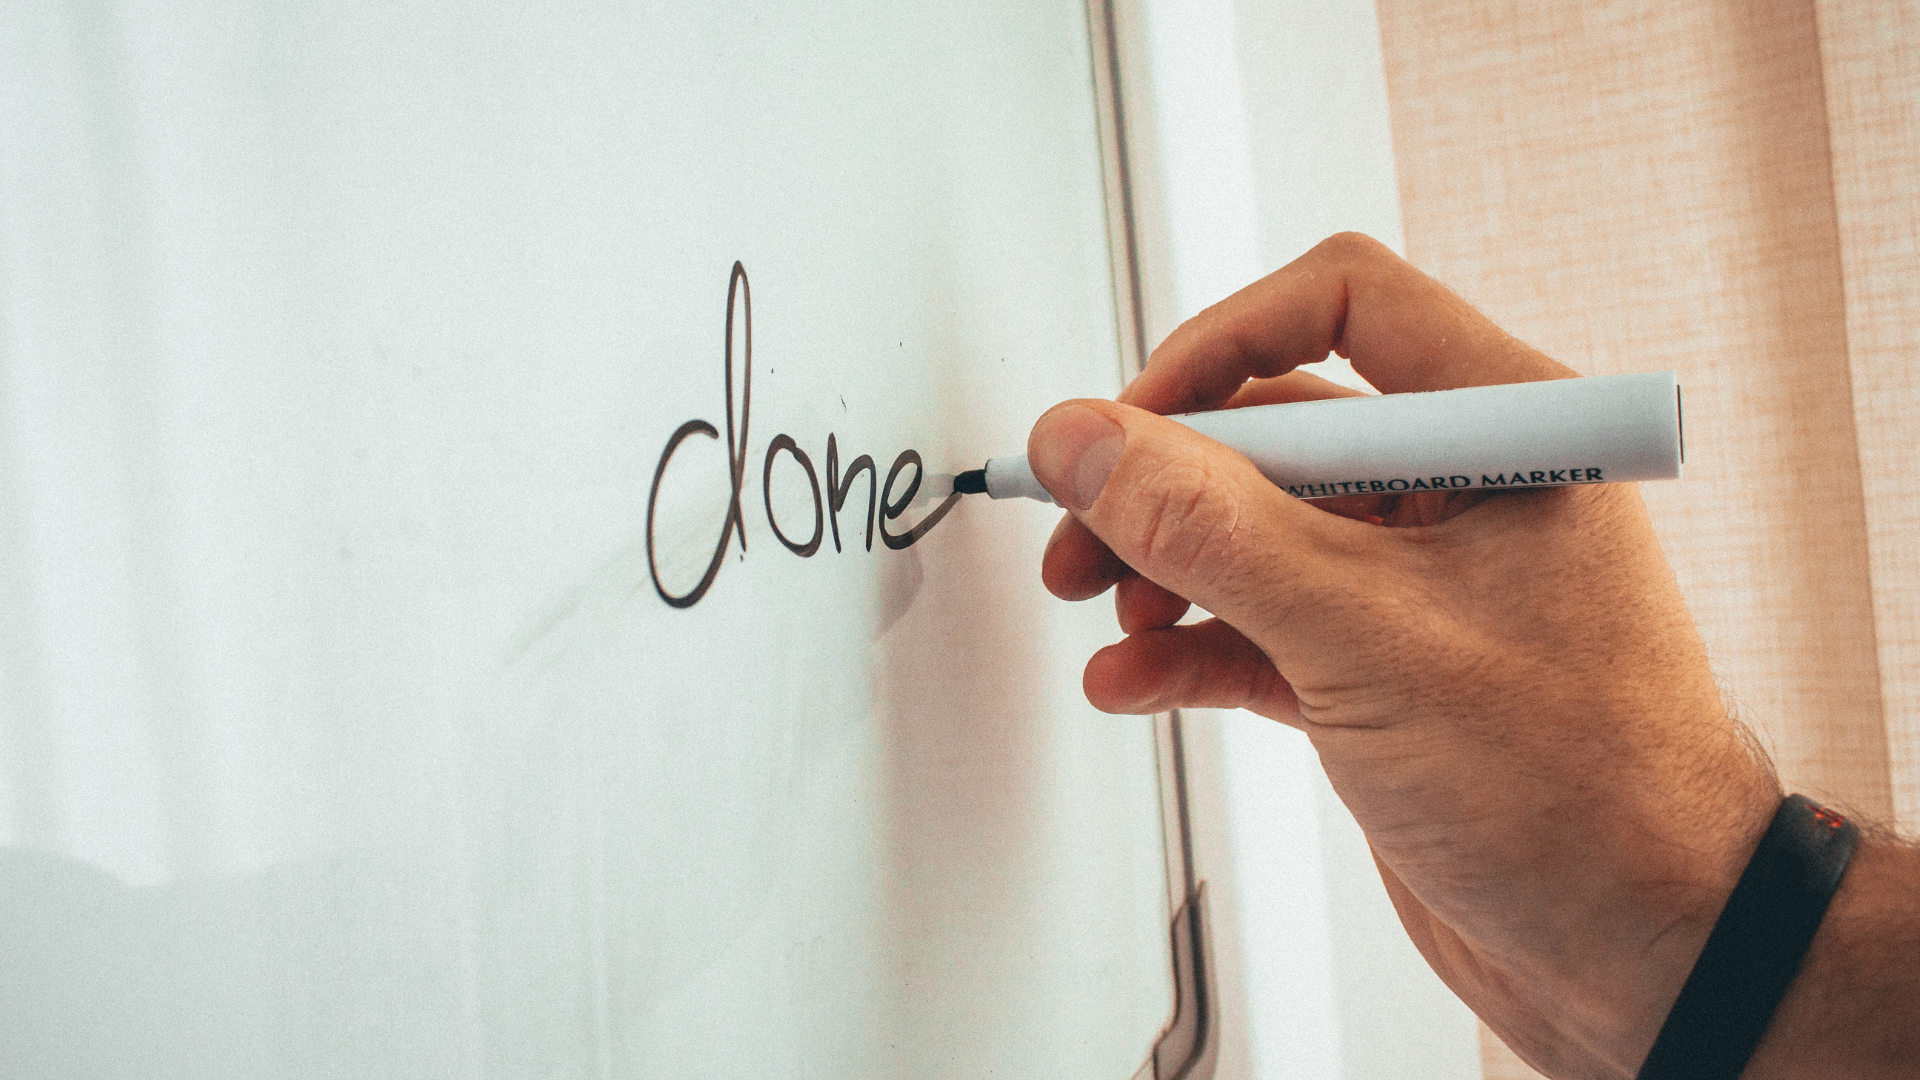 done
WHITEBOARD MARKER